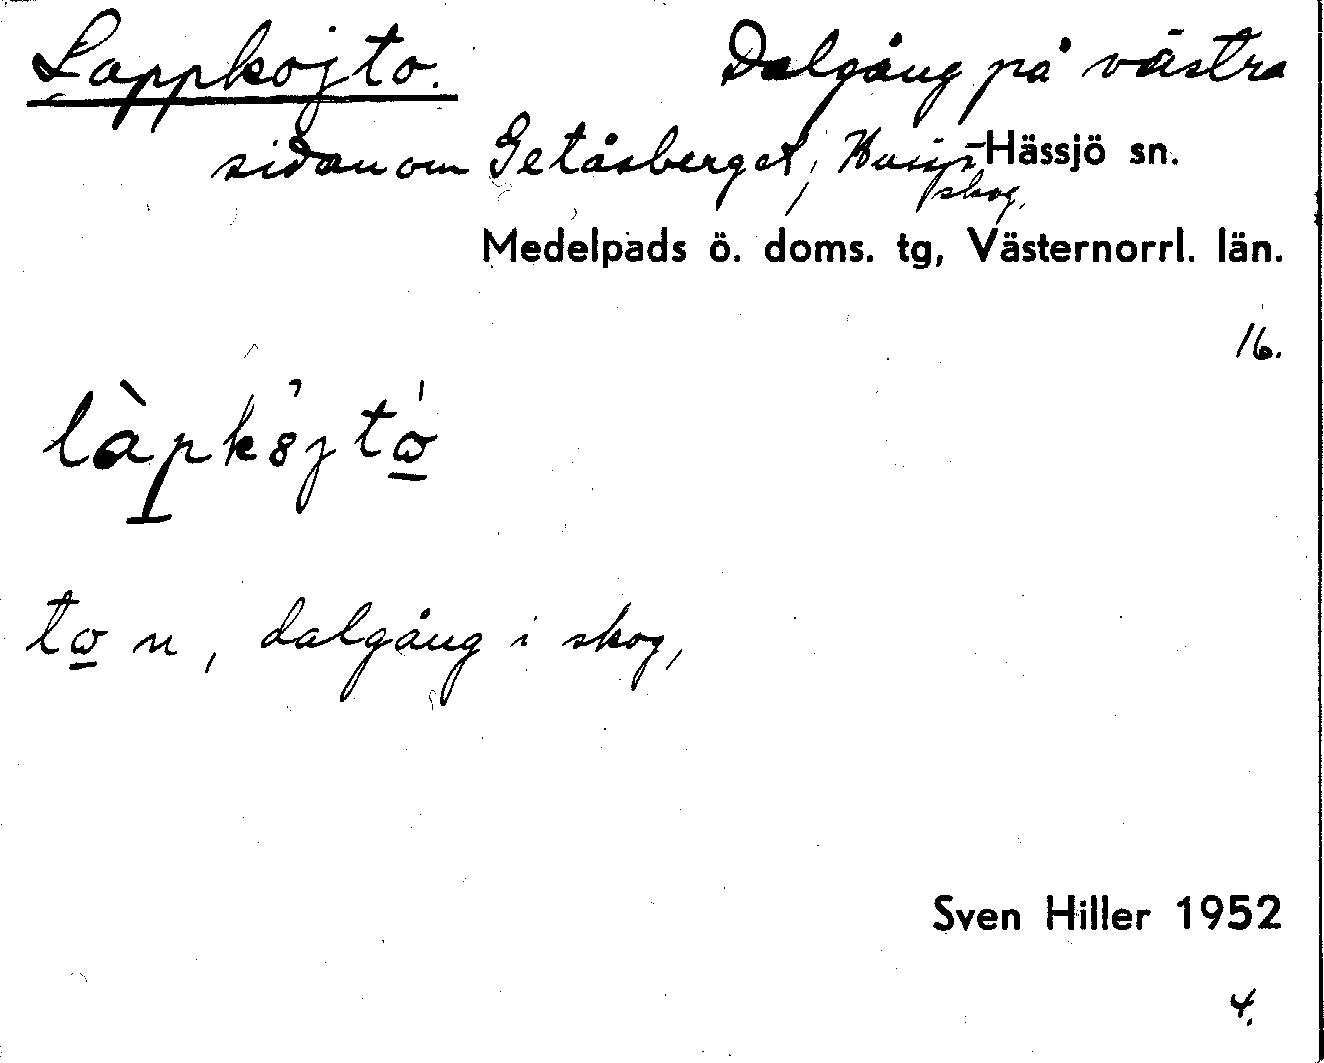 Lappkojto. Dalgång på västra
sidan om Getåsberget, Hässjö sn.
skog.
Medelpads ö. doms. tg, Västernorrl. län.
16.
to n, dalgång i skog,
Sven Hiller 1952
4.